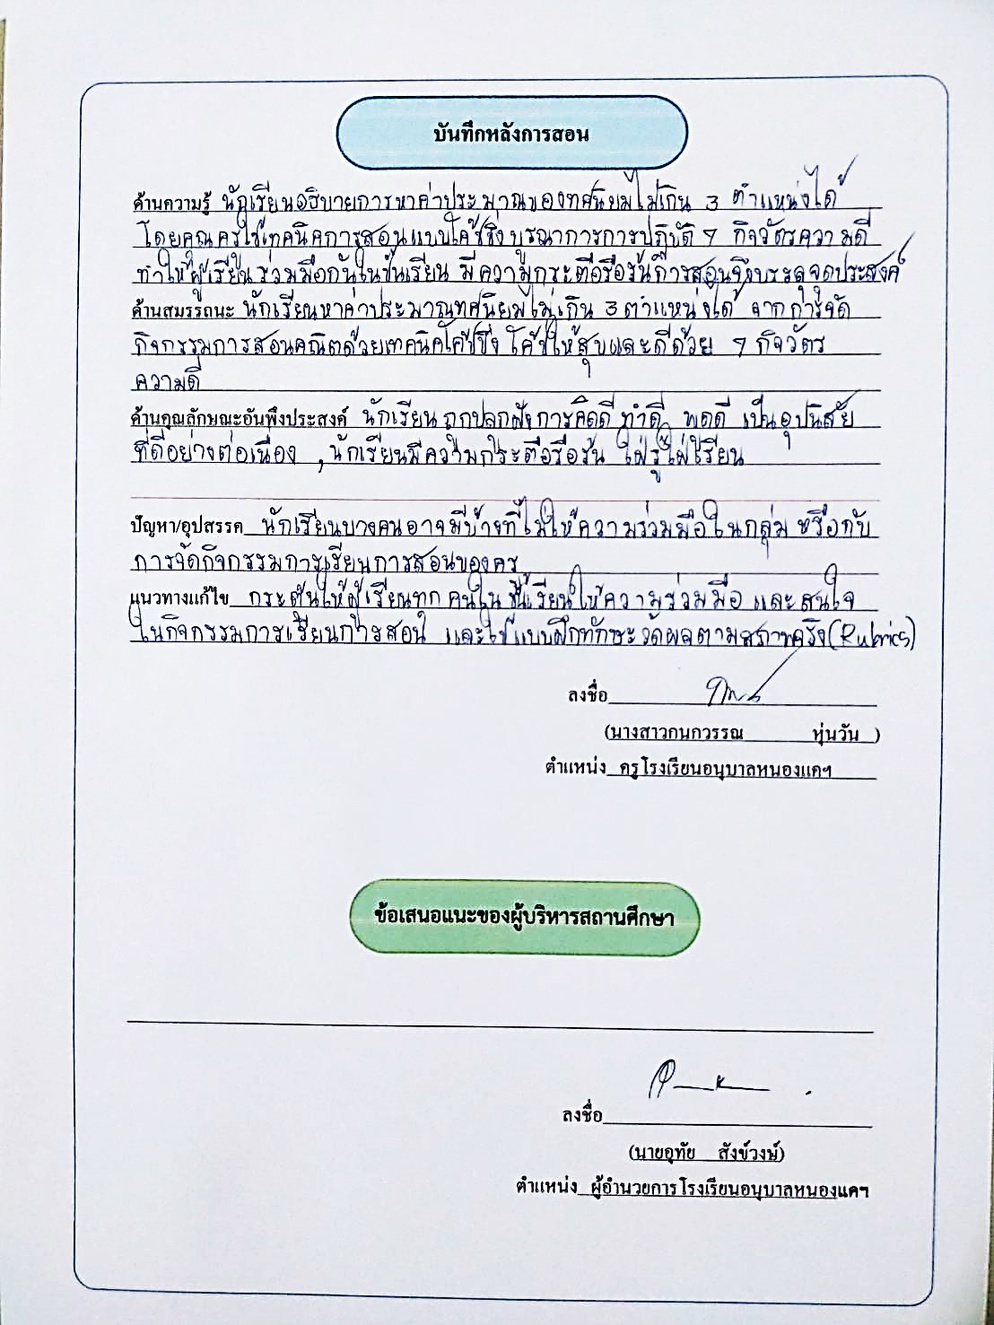 บันทึกหลังการสอน
ด้านความรู้ นักเรียนอธิบายการหาค่าประมาณของทศนิยมไม่เกิน 3 ตำแหน่งได้
โดยคุณครูใช้เทคนิคการสอนแบบโค้ชชิ่งบูรณาการการปฏิบัติ 7 กิจวัตรความดี
ทำให้ผู้เรียนร่วมมือกันในชั้นเรียน มีความกระตือรือร้นการสอนจึงบรรลุจุดประสงค์
ด้านสมรรถนะ นักเรียนหาค่าประมาณทศนิยมไม่เกิน 3 ตำแหน่งได้ จากการจัด
กิจกรรมการสอนคณิตด้วยเทคนิคโค้ชชิ่ง โค้ชให้สุขและดีด้วย 7 กิจวัตร
ความดี
ด้านคุณลักษณะอันพึงประสงค์ นักเรียนถูกปลูกฝังการคิดดี ทำดี พูดดี เป็นอุปนิสัย
ที่ดีอย่างต่อเนื่อง , นักเรียนมีความกระตือรือร้น ใฝ่รู้ใฝ่เรียน
ปัญหา/อุปสรรค นักเรียนบางคนอาจมีบ้างที่ไม่ให้ความร่วมมือในกลุ่ม หรือกับ
การจัดกิจกรรมการเรียนการสอนของครู
แนวทางแก้ไข กระตุ้นให้ผู้เรียนทุกคนในชั้นเรียนให้ความร่วมมือ และสนใจ
ในกิจกรรมการเรียนการสอน และใช้แบบฝึกทักษะวัดผลตามสภาพจริง (Rubrics)
ลงชื่อ
(นางสาวกนกวรรณ หุ่นวัน )
ตำแหน่ง ครูโรงเรียนอนุบาลหนองแคฯ
ข้อเสนอแนะของผู้บริหารสถานศึกษา
ลงชื่อ
(นายอุทัย สังข์วงษ์)
ตำแหน่ง ผู้อำนวยการโรงเรียนอนุบาลหนองแคฯ